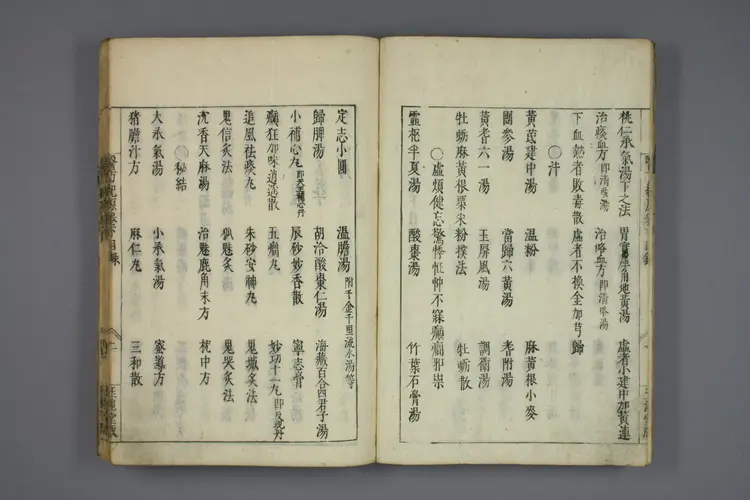 桃仁承氣湯下之法 胃實犀角地黃湯 虛者小建中加黃連
治痰血方即清痰湯 治咯血方即清咯湯
下血熱者敗毒散 虛者不換金加芎歸
〇汗
黃芪建中湯 溫粉 麻黃根小麥
團參湯 當歸六黃湯 耆附湯
黃耆六一湯 玉屏風湯 調衛湯
牡蠣麻黃根粟米粉撲法 牡蠣散
〇虛煩健忘驚悸怔忡不寐癲癇邪祟
靈枢半夏湯 酸棗湯 竹葉石膏湯
定志小圓 溫膽湯附千金千里流水湯等
歸脾湯 胡洽酸棗仁湯 海藏百合四君子湯
小補心丸即天王補心丹 辰砂妙香散 寧志膏
癲狂加味逍遥散 五癇丸 妙功十一丸即返魂丹
追風祛痰丸 朱砂安神丸 鬼魘灸法
鬼信灸法 狐魅灸法 鬼哭灸法
沈香天麻湯 治魅鹿角末方 枕中方
〇秘結
大承氣湯 小承氣湯 蜜導方
猪膽汁方 麻仁丸 三和散